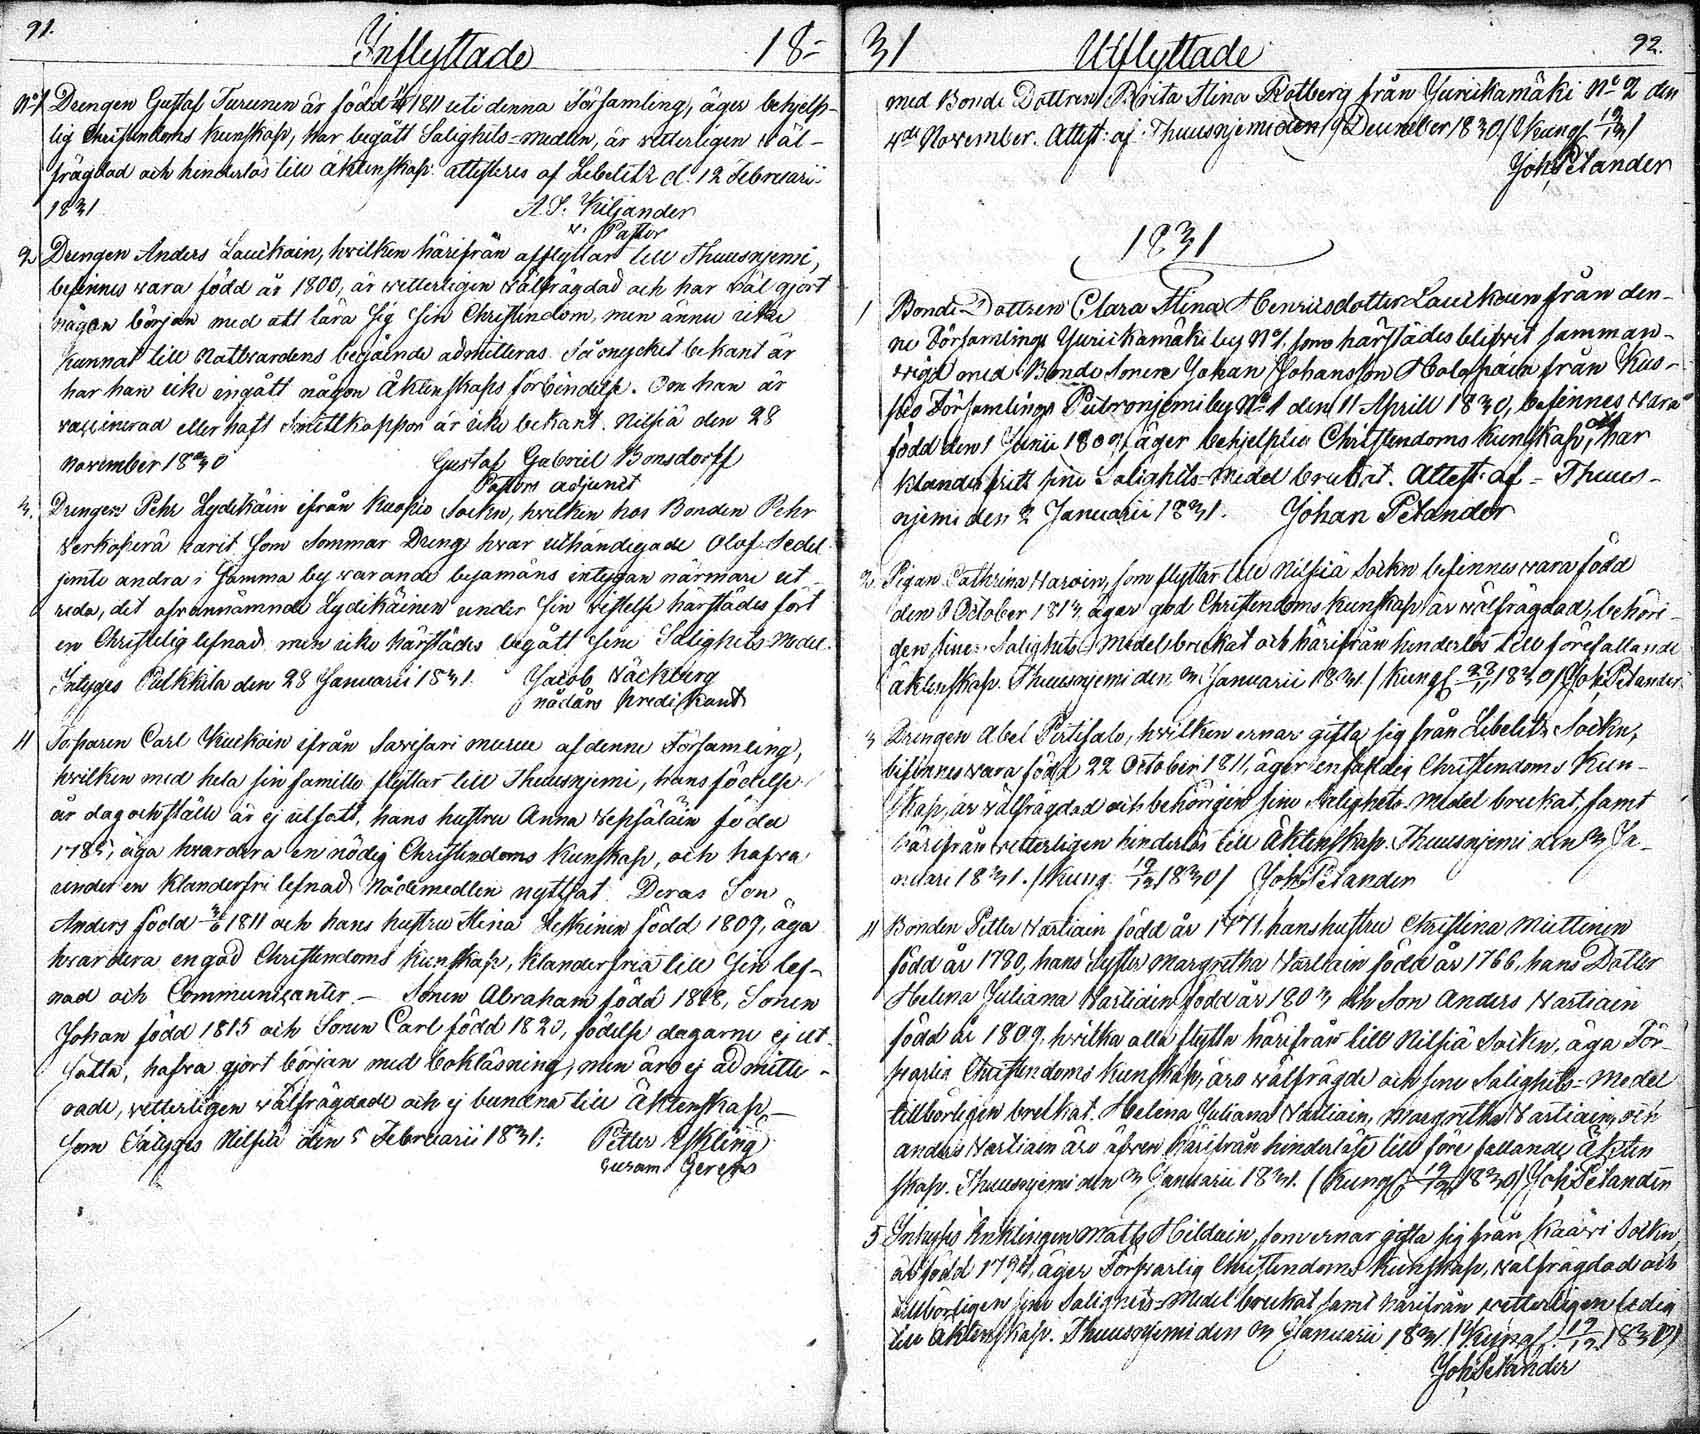 91.
Inflyttade 18-
No 1 Drengen Gustaf Turunen är född 1811 uti denna Församling, äger behjelp-
lig Christendoms kunskap, har begått Salighets-medlen, är vetterligen väl-
frägdad och hinderlös till äktenskap attesteras af Libelitz d. 12 Februarii
1831 A. J. Kiljander
v. Pastor
2 Drengen Anders Lauikain, hvilken härifrån afflyttar till Thuusnjemi,
befinnes vara född år 1800, är vitterligen välfrägdad och har väl gjort
någon början med att lära sig sin Christendom, men ännu icke
kunnat till Nattvardens begående admitteras. Så mycket bekant är
har han icke engått någon Äktenskaps förbindelse. Om han är
vaccinerad eller haft Smittkoppor är icke bekant. Nilsiä den 28
November 1830 Gustaf Gabriel Bonsdorff
Pastors adjunct
3. Drengen Pehr Lydikäin ifrån Kuopio Sockn, hvilken hos Bonden Pehr
Verkoperä varit som Sommar Dreng hvar uthändigade Olof Sedel
jemte andra i samma by varande byamäns intygan närmare ut-
reda, det ofvannämnde Lydikäinen under sin vistelse härstädes fört
en Christelig lefnad men icke härstädes begått sine Salighets Medel.
Intyges Pulkkila den 28 Januarii 1831. Jacob Väckberg
nådårs Predikant
4 Torparen Carl Kuikoin ifrån Savisari muru af denne Församling,
hvilken med hela sin famille flyttar till Thuusnjemi, hans födelse
år dag och ställe är ej utsatt, hans hustru Anna Vepsäläin född
1785, äga hvardera en nödig Christendoms kunskap, och hafva
under en klanderfri lefnad Nådemedlen nyttjat. Deras Son
Anders född 1811 och hans hustru Stina Heskinen född 1809, äga
hvardera en god Christendoms kunskap, klanderfria till sin lef-
nad och Communicanter. - Sonen Abraham född 1808, Sonen
Johan född 1815 och Sonen Carl född 1820, födelse dagarne ej ut-
satta, hafva gjort början med bokläsning, men äro ej admitte-
rade, vetterligen välfrägdade och ej bundna till Äktenskap, -
som intyges Nilsiä den 5 Februarii 1831. Petter Eskling
curam Gerens
31 Utflyttade 92.
med Bonde Dottren Brita Stina Rotberg från Juurikamäki No 2 den
4de November. Attest: af Thuusnjemi den 19 December 1830 /Kungf 19/12/
Joh. Petander
1831
1 Bonde Dottren Clara Stina Henricsdotter Lauikain från den-
ne Församlings Juurikamäki by No 1, som härstädes blifvit samman-
vigd med Bonde Sonen Johan Johansson Holopain från Kus-
pio Församlings Puuronjemi by No 1 den 11 April 1830, befinnes vara
född den 1 Junii 1809, äger behjelplig Christendoms kunskap, och har
klanderfritt sine Salighets-Medel brukat. Attest: af - Thuus-
njemi den 2 Januarii 1831. Johan Petander
2 Pigan Cathrina Varvin, som flyttar till Nilsiä Sockn befinnes vara född
den 8 October 1813 äger god Christendoms kunskap är välfrägdad, behöri-
gen sine Salighets Medel brukat och härifrån hinderlös till förefallande
äktenskap. Thuusnjemi den 3 Januarii 1831. /Kungf 1830/ Joh. Petander
3 Drengen Abel Pirtisalo, hvilken ernar gifta sig från Libelitz Sockn,
befinnes vara född 22 October 1811, äger enfaldig Christendoms Kun-
skap, är välfrägdad och behörigen sine Salighets Medel brukat, samt
härifrån vetterligen hinderlös till Äktenskap. Thuusnjemi den 3 Ja-
nuari 1831. /Kung. 19/12 1830/ Joh. Petander
4 Bonden Petter Vartiain född år 1771, hans hustru Christina Miettinen
född år 1780, hans Syster Margretha Vartiain född år 1766, hans Dotter
Helena Juliana Vartiain född år 1803 och Son Anders Vartiain
född år 1809, hvilka alla flytta härifrån till Nilsiä Sockn, äga För-
svarlig Christendoms kunskap, äro välfrägde och sine Salighets-Medel
tillbörligen brukat. Helena Juliana Vartiain, Margretha Vartiain och
Anders Vartiain äro äfven härifrån hinderlöse till före fallande Äkten
skap. Thuusnjemi den 3 Januarii 1831. (Kungf 19/12 1830) Joh. Petander
5 Inhyses Enklingen Matts Hilduin, som ernar gifta sig från Kaavi Sockn,
är född 1794, äger Försvarlig Christendoms kunskap, välfrägdad och
tillbörligen sine Salighets-Medel brukat samt härifrån vetterligen ledig
till Äktenskap. Thuusnjemi den 3 Januarii 1831 /Kungf. 19/12 1830/
Joh. Petander